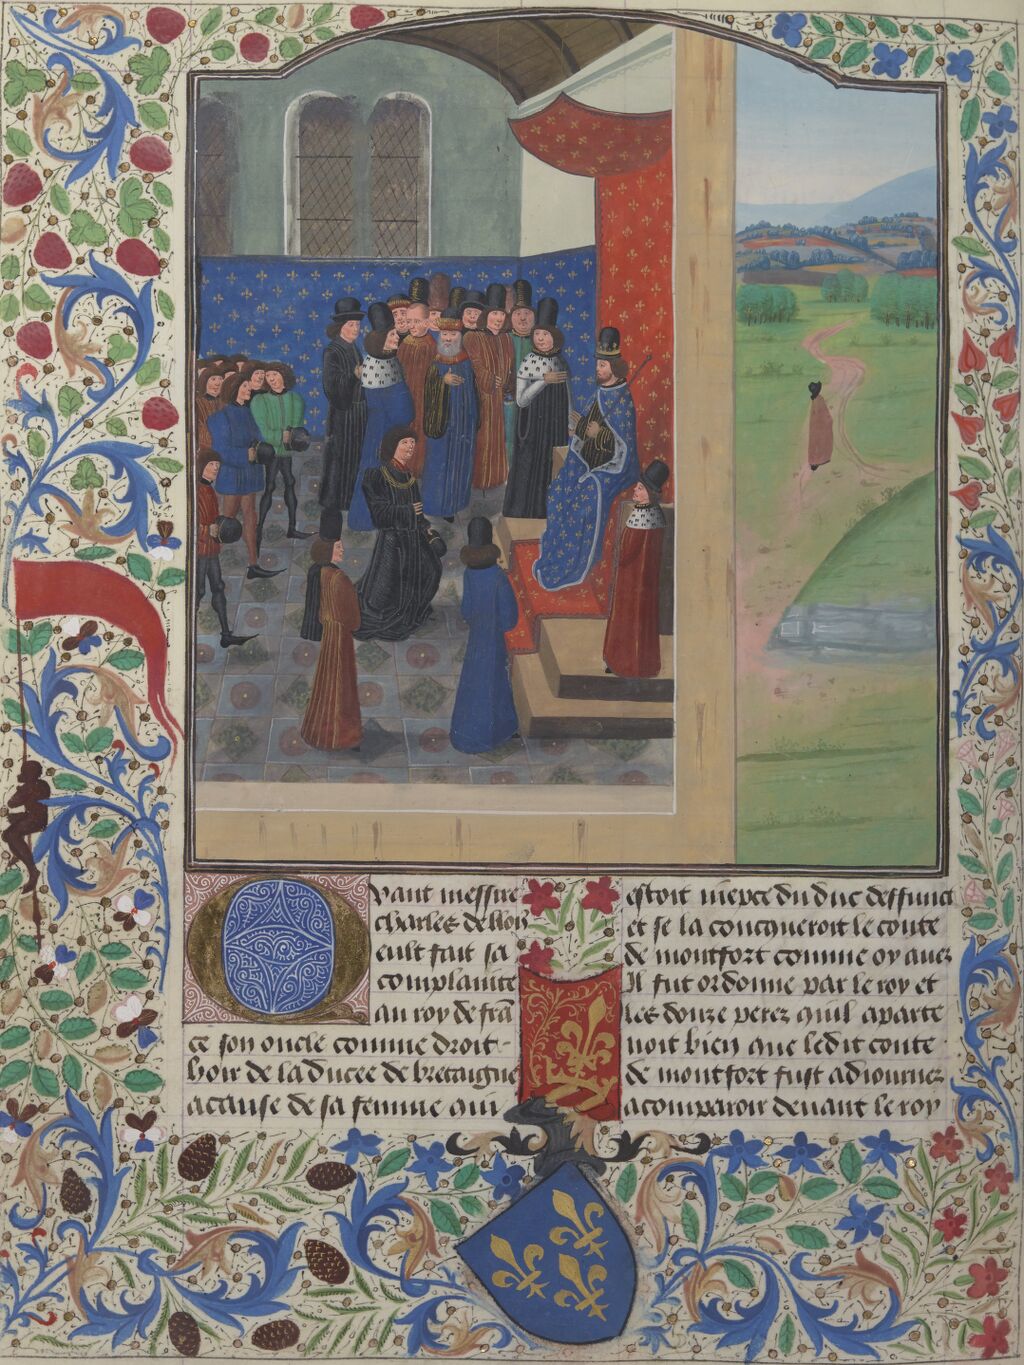 Quant messire
Charles de blois
eult fait sa
complainte
au roy de frā
ce son oncle comme droit
hoir de la ducee de bretaigne
a cause de sa femme qui
estoit niepce du duc deffunct
et se la concqueroit le conte
de montfort comme oy avez
Il fut ordonne par le roy et
les douze perez quil aparte
noit bien que ledit conte
de montfort fust adiournez
a comparoir devant le roy